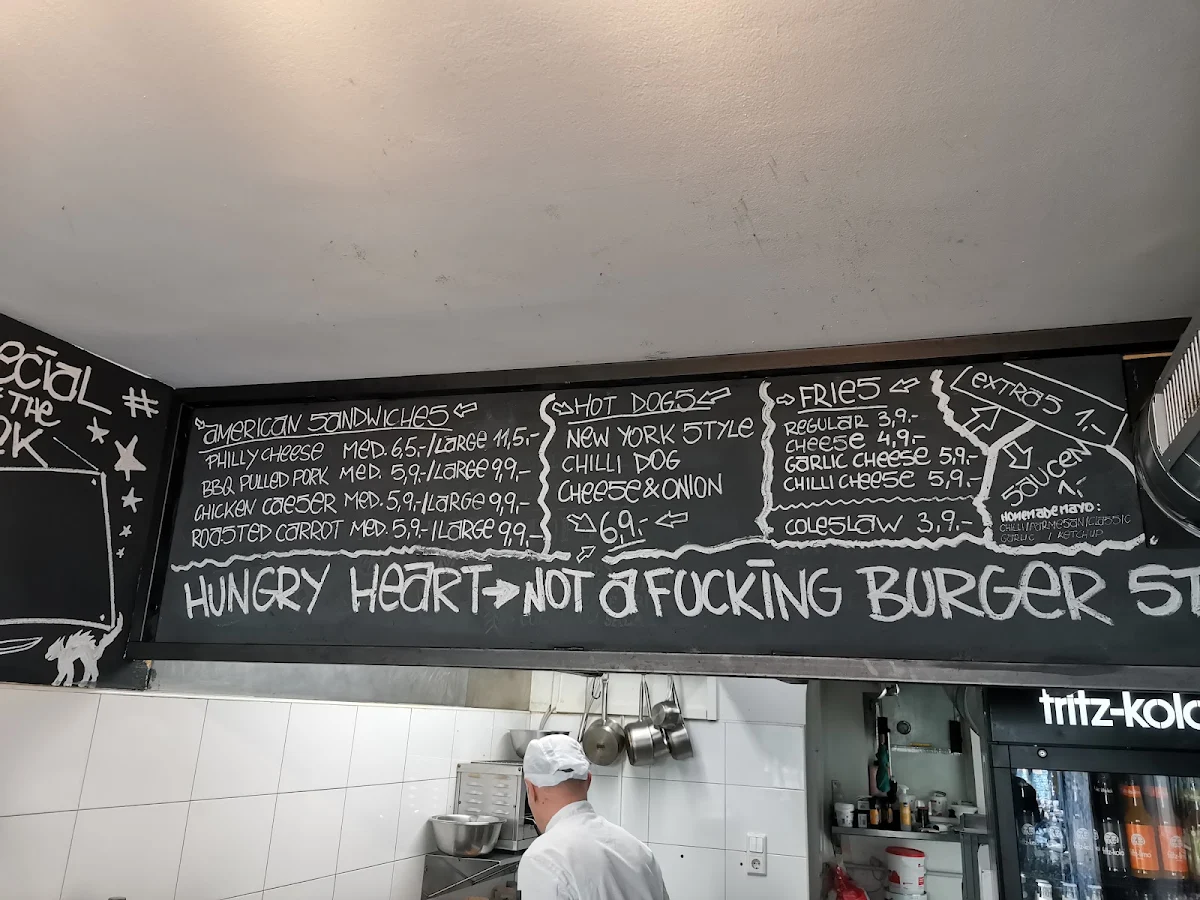 THE
#
AMERICAN SANDWICHES
PHILLY CHEESE MED. 6,5,-/LARGE 11,5,-
BBQ PULLED PORK MED. 5,9,-/LARGE 9,9,-
CHICKEN CAESER MED. 5,9,-/LARGE 9,9,-
ROASTED CARROT MED. 5,9,-/LARGE 9,9,-
HOT DOGS
NEW YORK STYLE
CHILLI DOG
CHEESE & ONION
6,9,-
FRIES
REGULAR 3,9,-
CHEESE 4,9,-
GARLIC CHEESE 5,9,-
CHILLI CHEESE 5,9,-
COLESLAW 3,9,-
EXTRAS 1,-
SAUCEN
1,-
HOMEMADE MAYO:
CHILLI/PARMESAN/CLASSIC
GARLIC / KETCHUP
HUNGRY HEART → NOT A FUCKING BURGER ST
fritz-kola